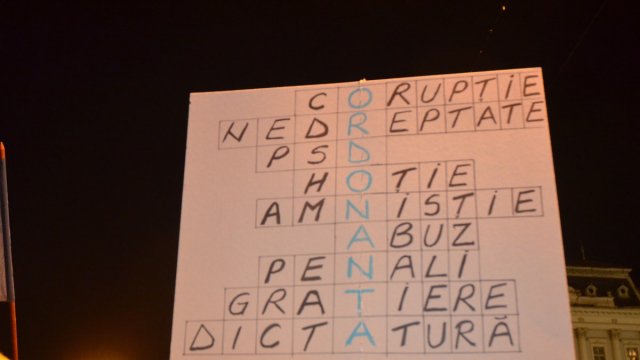 CORUPȚIE
NEDREPTATE
PSD
HOȚIE
AMNISȚIE
ABUZ
PENALI
GRATIERE
DICTATURĂ